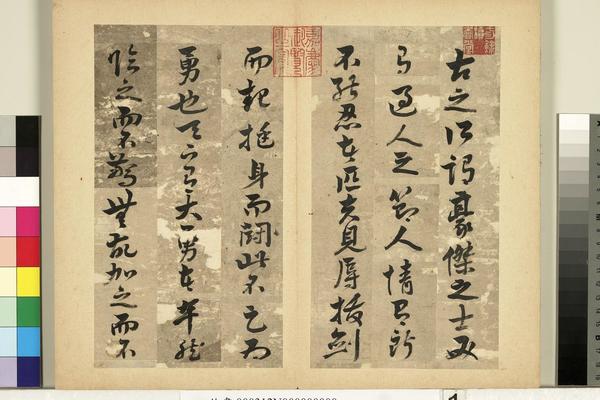 古之所謂豪傑之士必
有過人之節人情有所
不能忍者匹夫見辱拔劍
而起挺身而鬪此不足為
勇也天下有大勇者卒然
臨之而不驚無故加之而不